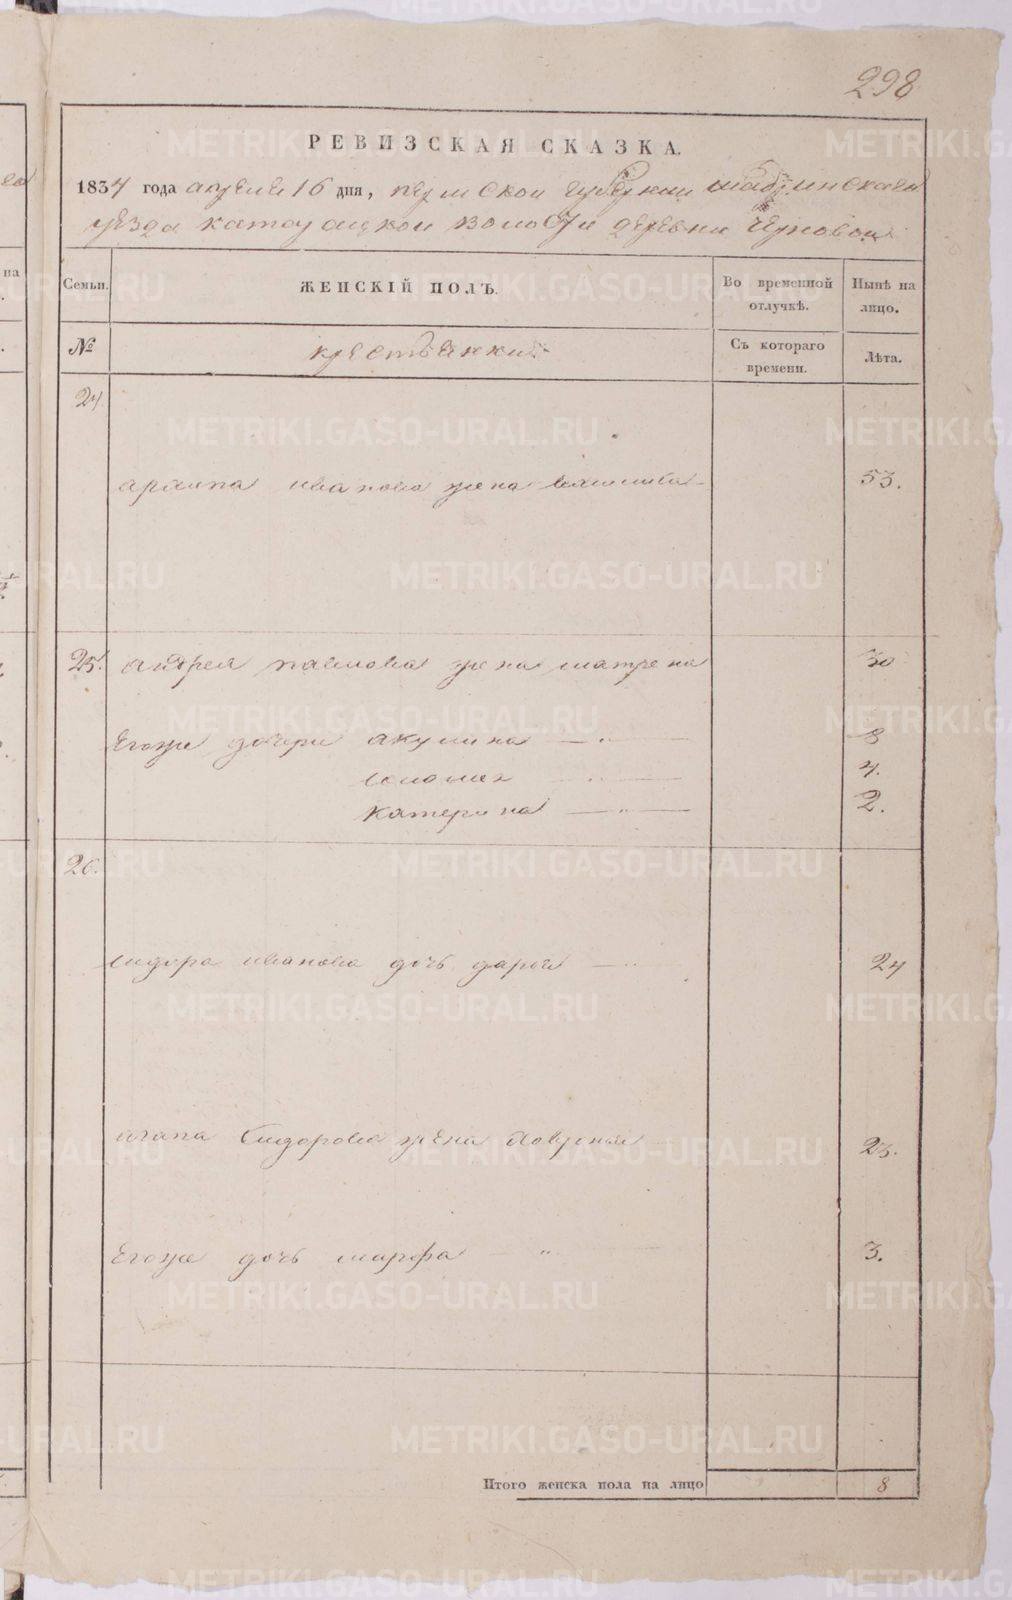 298
РЕВИЗСКАЯ СКАЗКА.
1834 года апреля 16 дня, пермской губернии шадринскаго
уезда катайской волости деревни Черновой
Семьи.
ЖЕНСКІЙ ПОЛЪ.
Во временной отлучкѣ.
Нынѣ на лицо.
№
крестьянки
Съ котораго времени.
Лѣта.
24.
архипа иванова жена 53.
25. андрея павлова жена матрена 30
Егоже дочери акулина 8
4.
катерина 2.
26.
сидора иванова дочь дарья 24
агапа сидорова жена 23.
Егоже дочь марфа 3.
Итого женска пола на лицо 8
METRIKI.GASO-URAL.RU